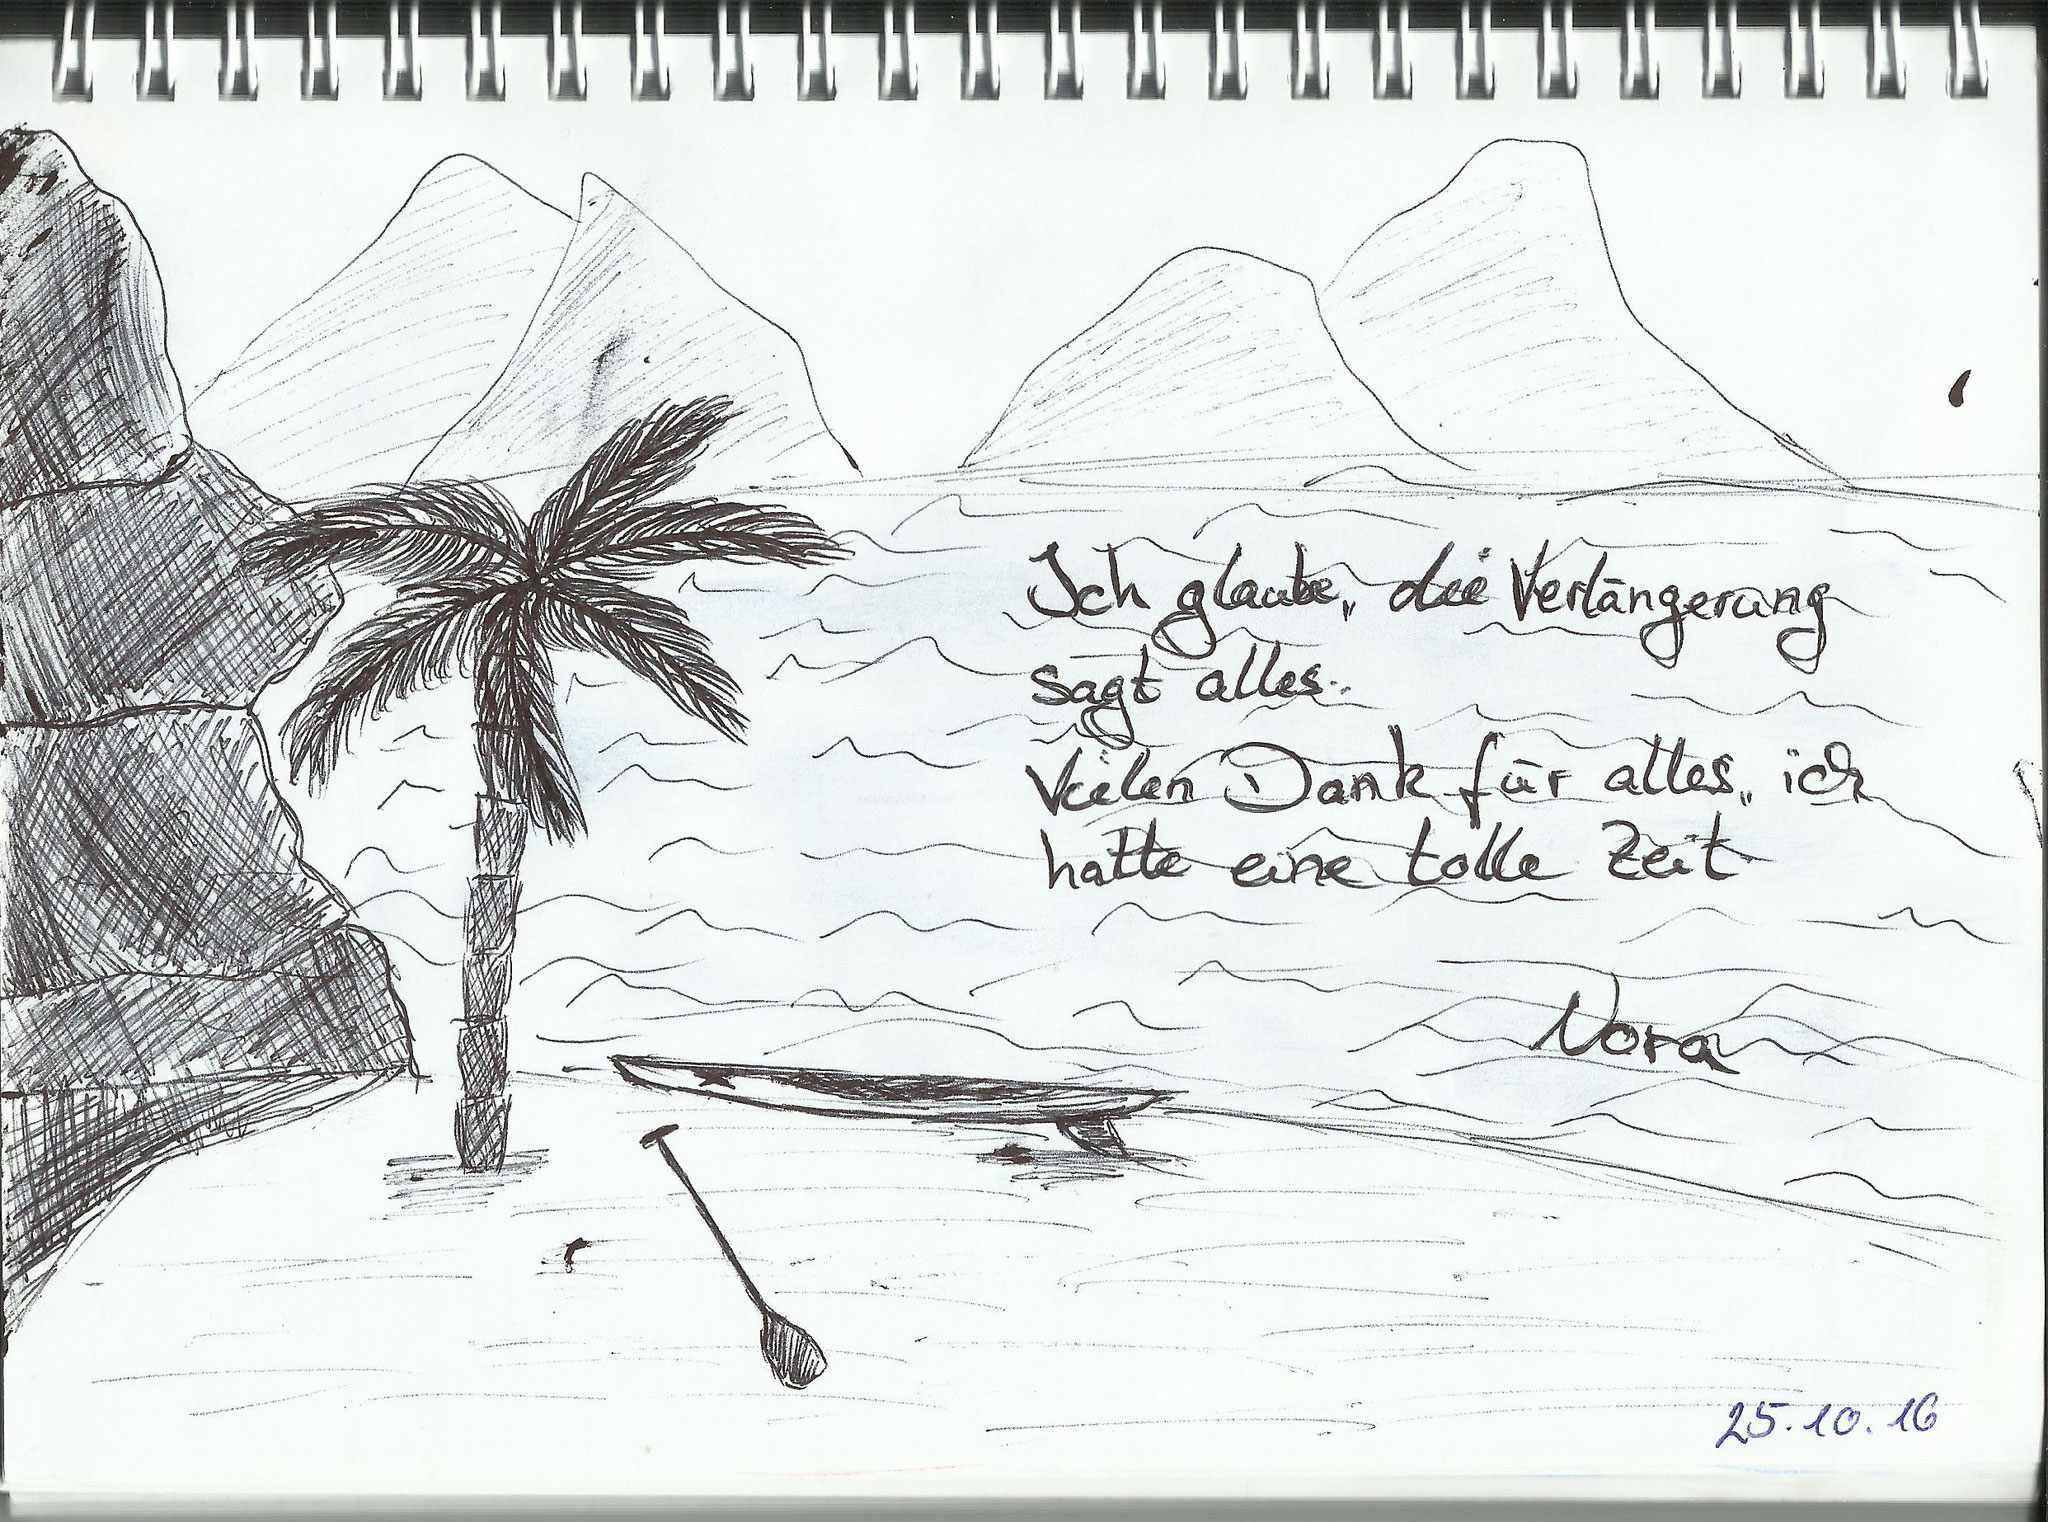 Ich glaube, die Verlängerung
sagt alles..
Vielen Dank für alles, ich
hatte eine tolle Zeit
Nora
25.10.16